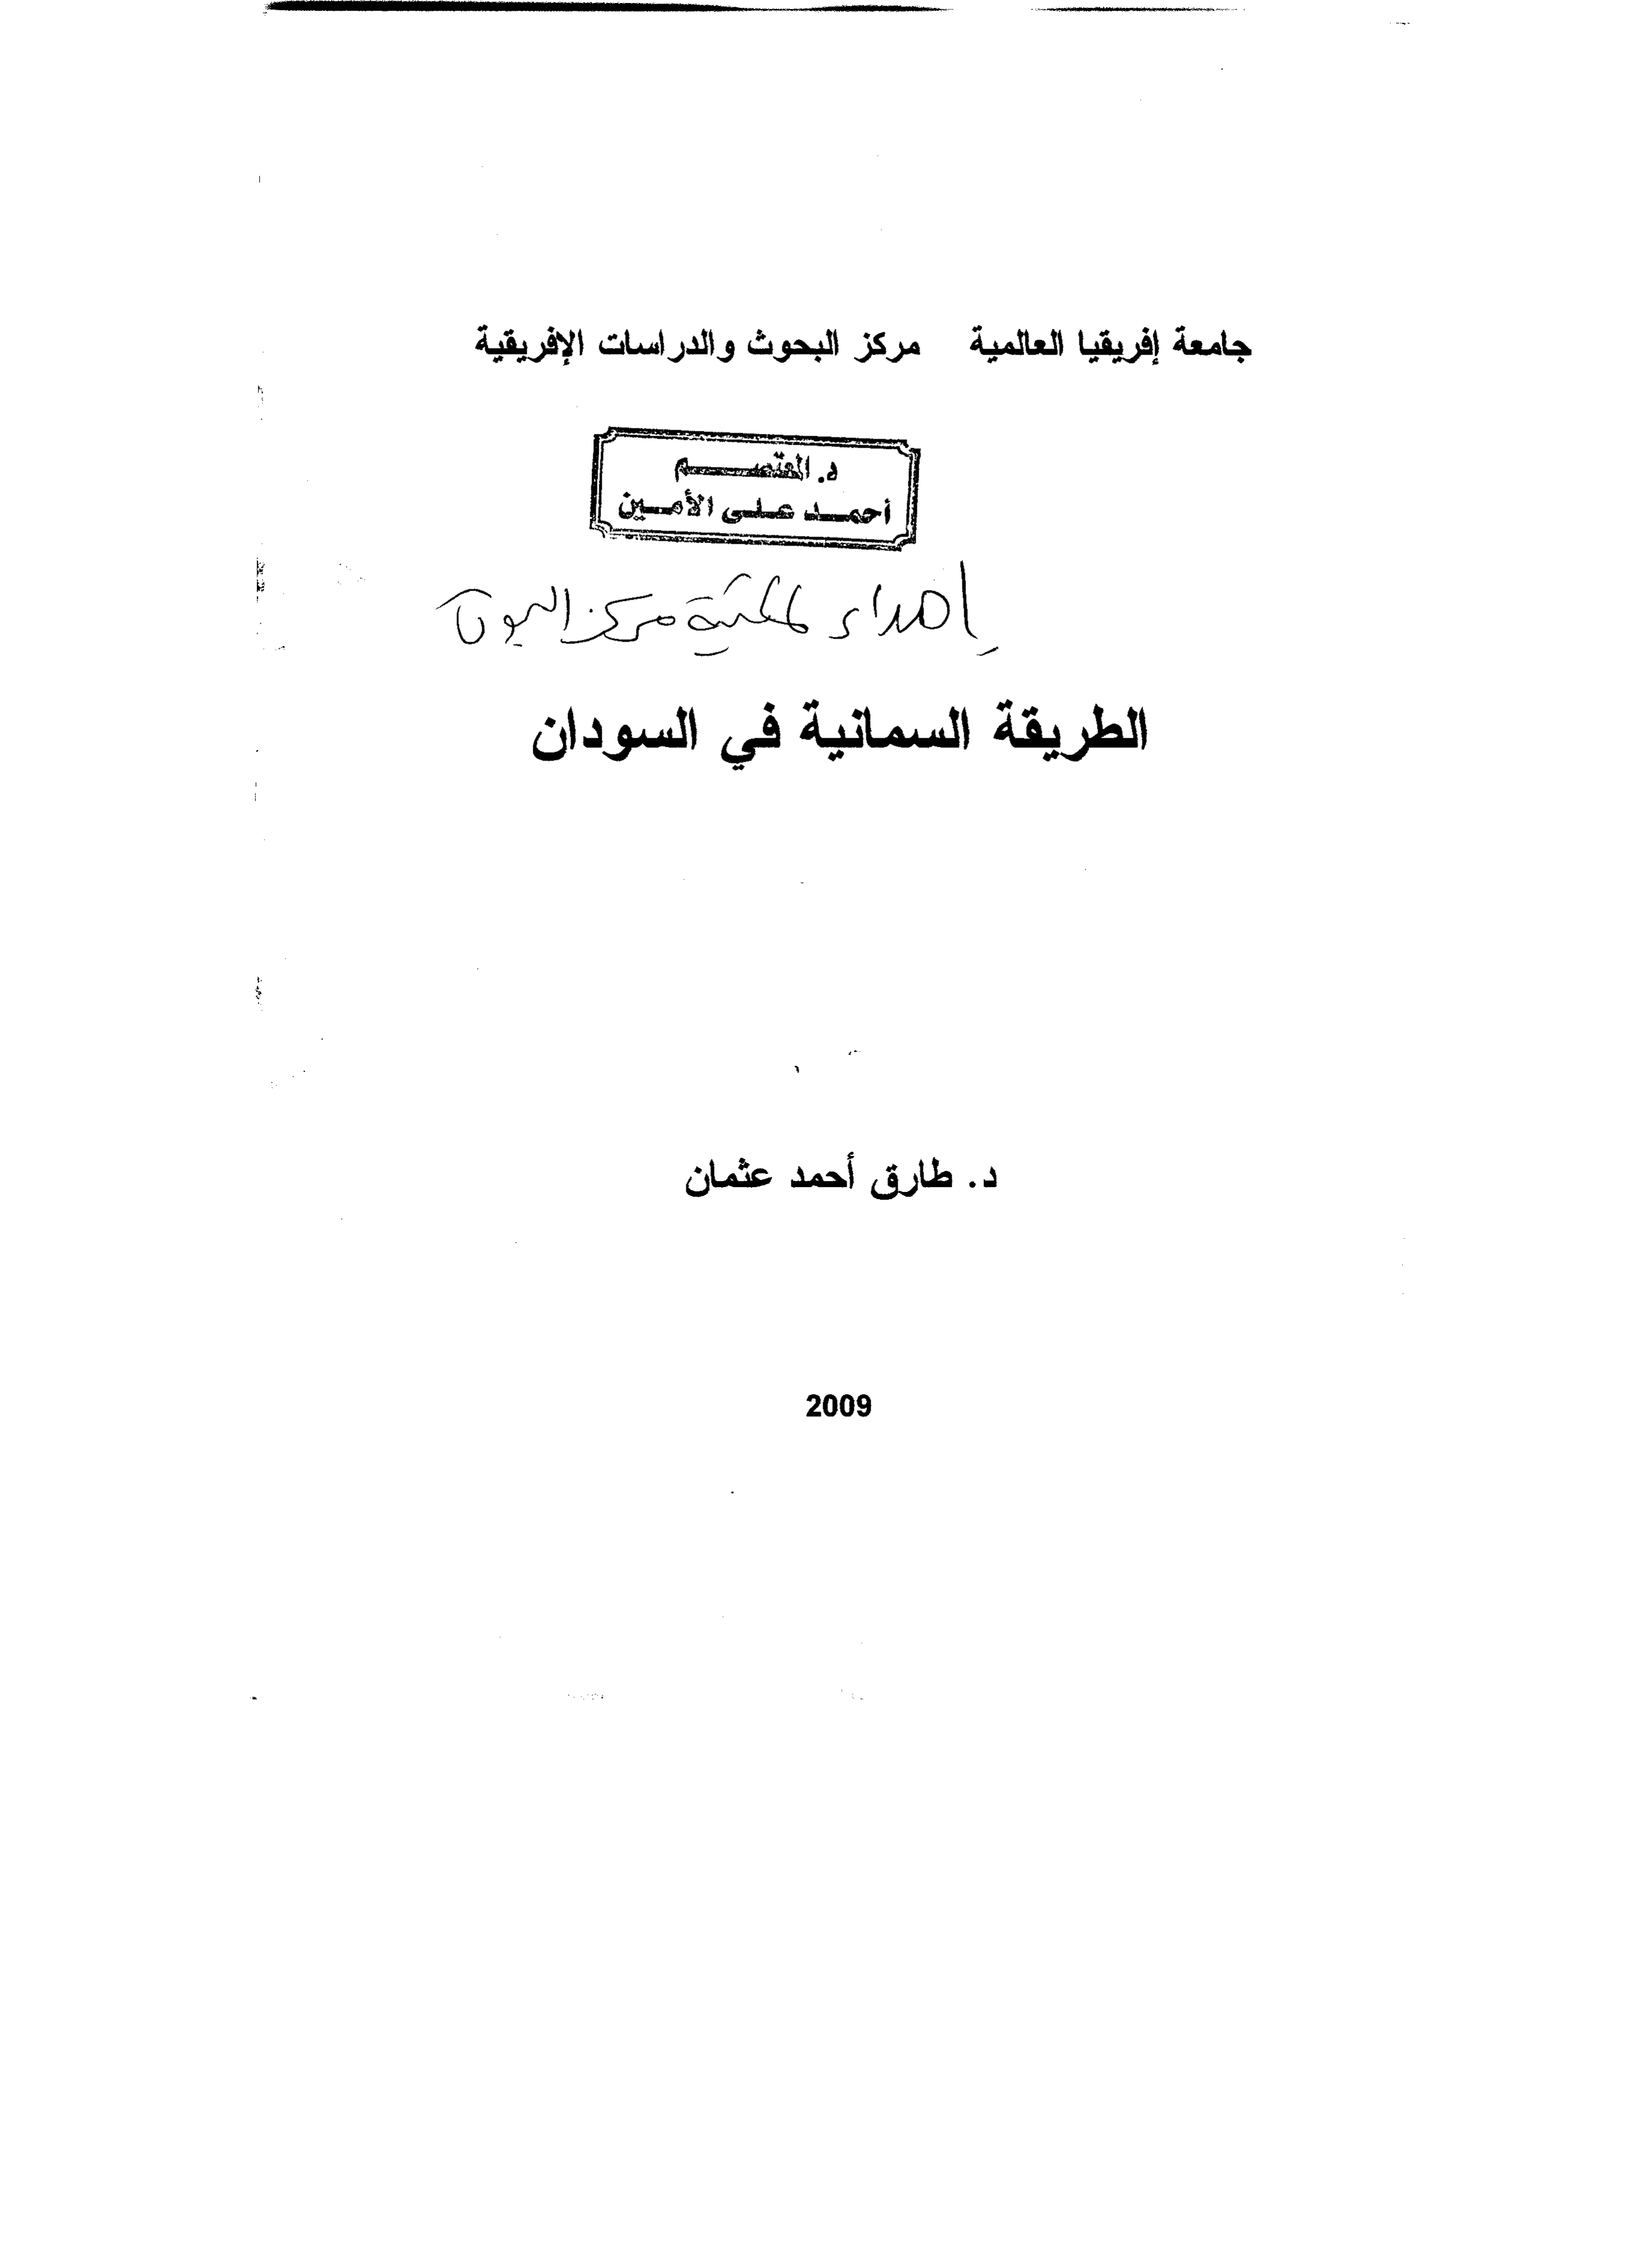 جامعة إفريقيا العالمية مركز البحوث والدراسات الإفريقية
د. المعتصم
أحمد على الأمين
إهداء لمكتبة مركز البحوث
الطريقة السمانية في السودان
د. طارق أحمد عثمان
2009